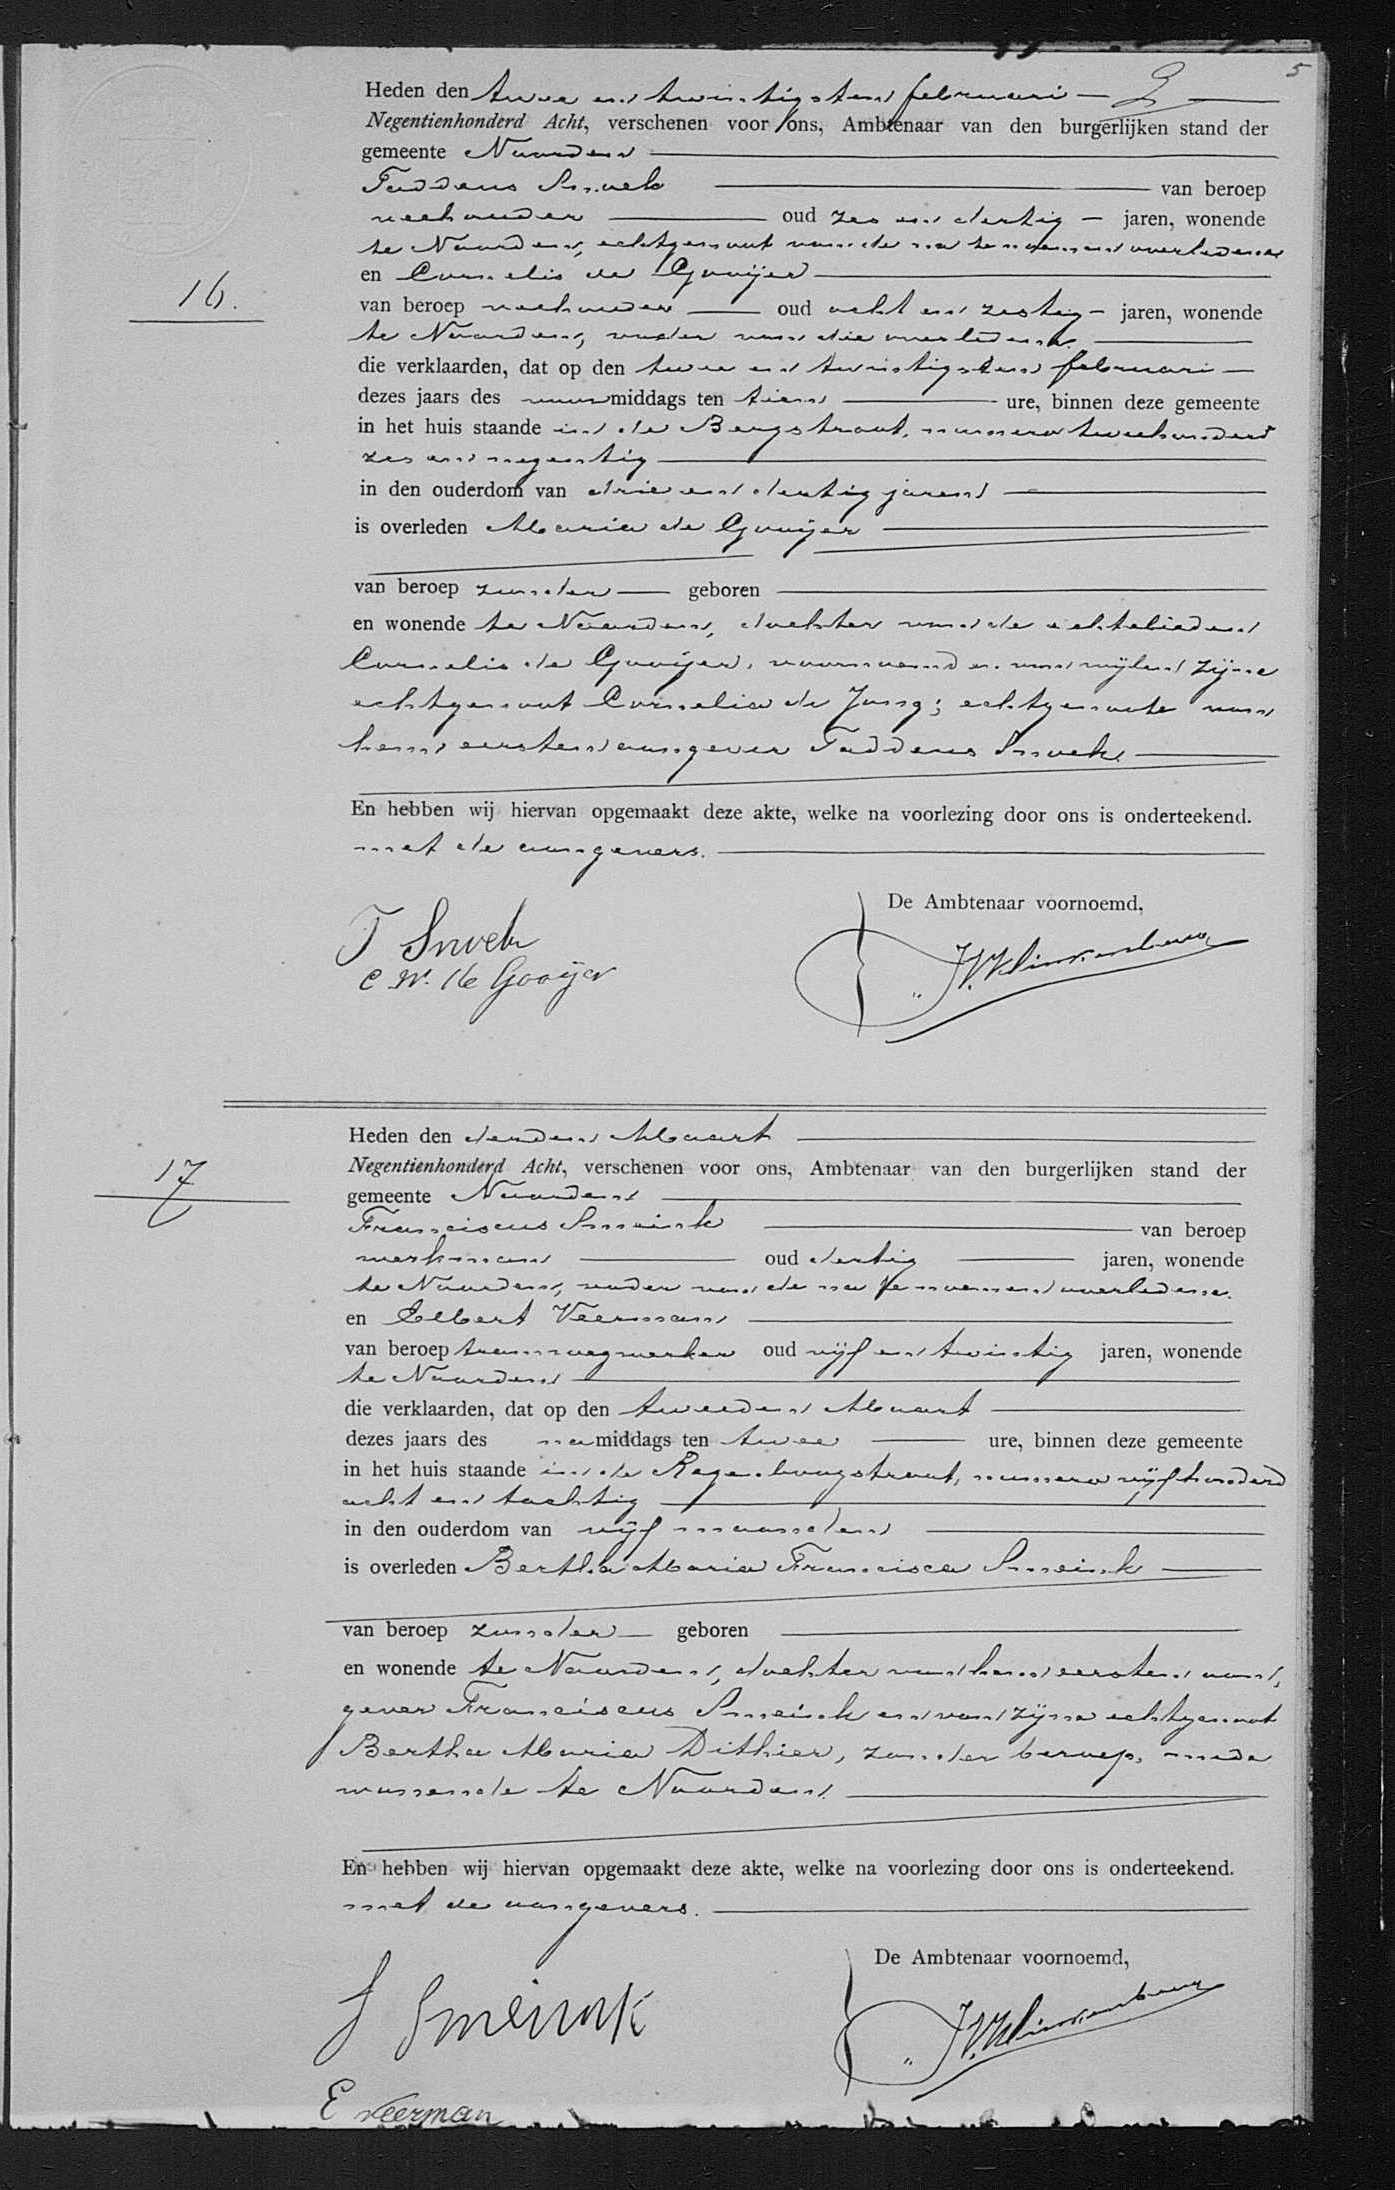 5
Heden den twee en twintigsten februari
Negentienhonderd Acht, verschenen voor ons, Ambtenaar van den burgerlijken stand der
gemeente Naarden
Taddeus Snoek van beroep
veehouder oud zes en dertig jaren, wonende
te Naarden, echtgenoot van de na te noemen overledene
en Cornelis de Gooijer
16.
van beroep veehouder oud acht en zestig jaren, wonende
te Naarden, vader van die overledene.
die verklaarden, dat op den twee en twintigsten februari
dezes jaars des voormiddags ten tien ure, binnen deze gemeente
in het huis staande in de Bergstraat, nummero tweehonderd
zes en negentig
in den ouderdom van drie en dertig jaren
is overleden Maria de Gooijer
van beroep zonder geboren
en wonende te Naarden, dochter van de echtelieden
Cornelis de Gooijer, voornoemd en van wijlen zijne
echtgenoot Cornelia de Jong; echtgenoote van
hem eersten aangever Taddeus Snoek.
En hebben wij hiervan opgemaakt deze akte, welke na voorlezing door ons is onderteekend.
met de aangevers.
De Ambtenaar voornoemd,
T Snoek
C W. de Gooijer
Heden den derden Maart
17
Negentienhonderd Acht, verschenen voor ons, Ambtenaar van den burgerlijken stand der
gemeente Naarden
Franciscus Smeink van beroep
werkman oud dertig jaren, wonende
te Naarden, vader van de na te noemen overledene.
en Elbert Veerman
van beroep tramwegwerker oud vijf en twintig jaren, wonende
te Naarden
die verklaarden, dat op den tweeden Maart
dezes jaars des namiddags ten twee ure, binnen deze gemeente
in het huis staande in de Regenboogstraat, nummero vijfhonderd
acht en tachtig
in den ouderdom van vijf maanden
is overleden Bertha Maria Francisca Smeink
van beroep zonder geboren
en wonende te Naarden, dochter van hem eersten aan-
gever Franciscus Smeink en van zijne echtgenoot
Bertha Maria Dithier, zonder beroep, mede
wonende te Naarden.
En hebben wij hiervan opgemaakt deze akte, welke na voorlezing door ons is onderteekend.
met de aangevers.
De Ambtenaar voornoemd,
Smeink
E Veerman